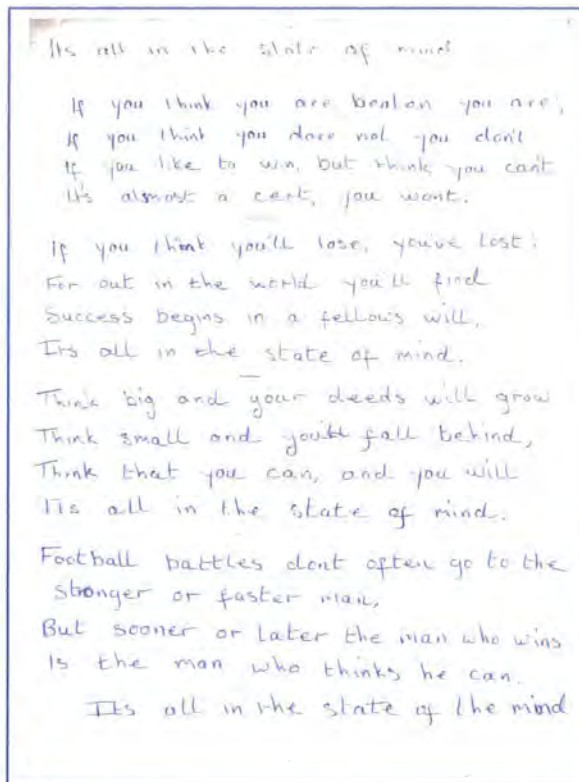 Its all in the state of mind
If you think you are beaten you are,
If you think you dare not you don't
If you like to win, but think you can't
It's almost a cert, you wont.
If you think you'll lose, you've lost;
For out in the world you'll find
Success begins in a fellows will,
Its all in the state of mind.
Think big and your deeds will grow
Think small and you'll fall behind,
Think that you can, and you will
Its all in the state of mind.
Football battles dont often go to the
stronger or faster man,
But sooner or later the man who wins
Is the man who thinks he can.
Its all in the state of the mind